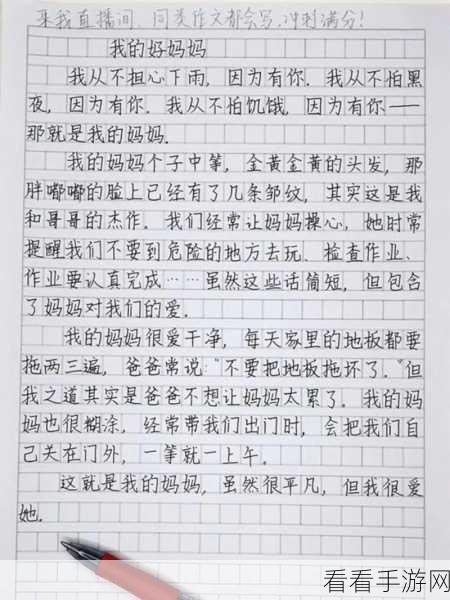 来我直播间，同类作文都会写，冲刺满分！
我的好妈妈
我从不担心下雨，因为有你．我从不怕黑
夜，因为有你．我从不怕饥饿，因为有你——
那就是我的妈妈．
我的妈妈个子中等，金黄金黄的头发，那
胖嘟嘟的脸上已经有了几条邹纹，其实这是我
和哥哥的杰作．我们经常让妈妈操心，她时常
提醒我们不要到危险的地方去玩、检查作业、
作业要认真完成……虽然这些话简短，但包含
了妈妈对我们的爱．
我的妈妈很爱干净，每天家里的地板都要
拖两三遍，爸爸常说："不要把地板拖坏了．"但
我之道其实是爸爸不想让妈妈太累了．我的妈
妈也很糊涂，经常带我们出门时，会把我们自
己关在门外，一等就一上午．
这就是我的妈妈，虽然很平凡，但我很爱
她．
看看手游网